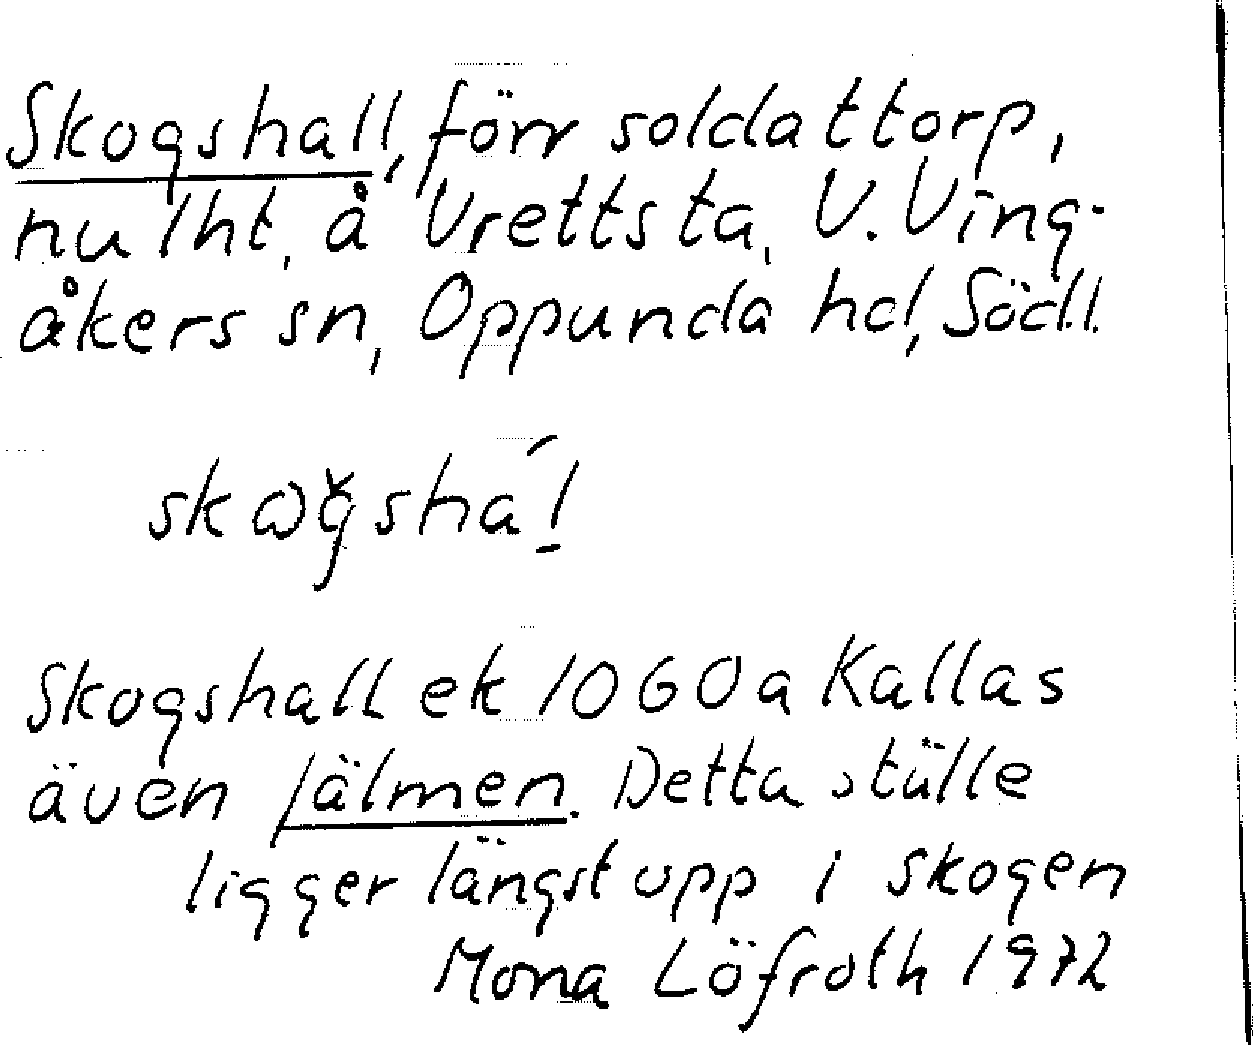 Skogshall, förr soldattorp,
nu lht, å Vrettsta, V. Ving-
åkers sn, Oppunda hd, Södl.

Skogshall ek 10G0a Kallas
även Jälmen. Detta ställe
ligger längst upp i skogen
Mona Löfroth 1972